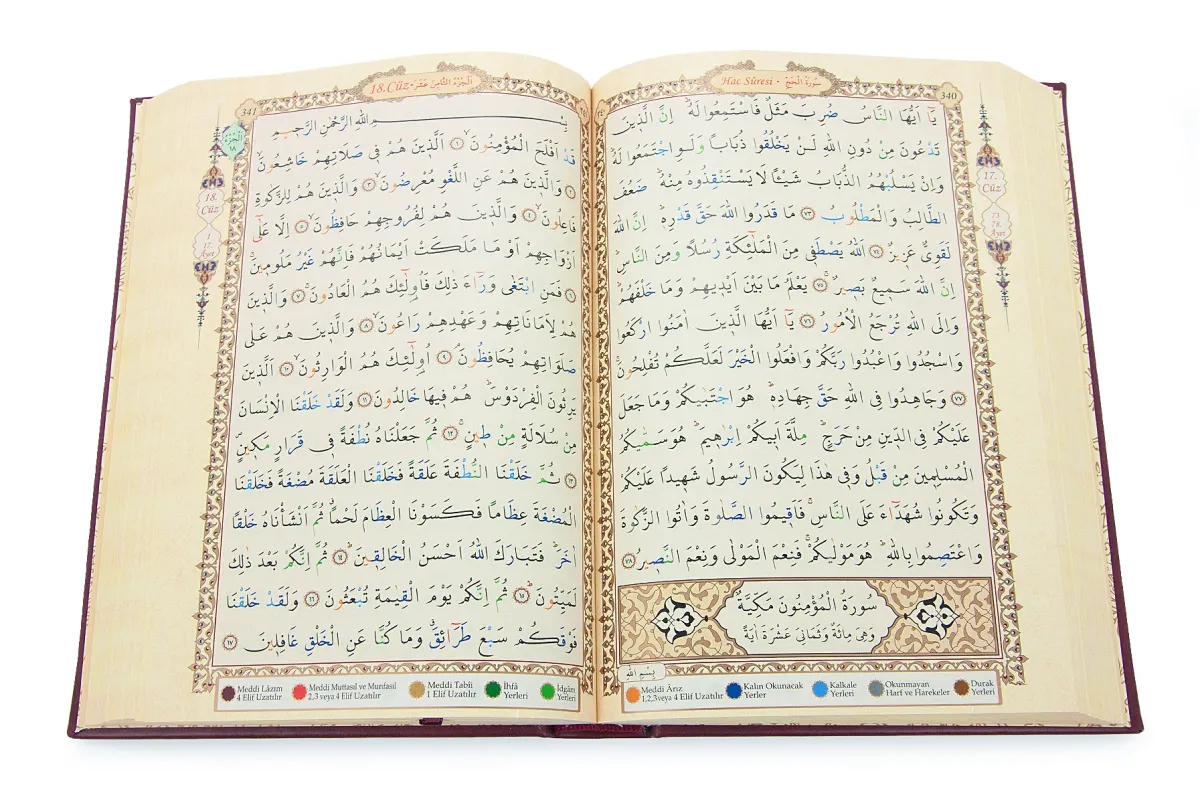 340
Hac Sûresi - سُورَةُ الْحَجِّ
17.
Cüz
73
78.
Âyet
يَٓا اَيُّهَا النَّاسُ ضُرِبَ مَثَلٌ فَاسْتَمِعُوا لَهُۜ اِنَّ الَّذٖينَ
تَدْعُونَ مِنْ دُونِ اللّٰهِ لَنْ يَخْلُقُوا ذُبَابًا وَلَوِ اجْتَمَعُوا لَهُۜ
وَاِنْ يَسْلُبْهُمُ الذُّبَابُ شَيْـًٔا لَا يَسْتَنْقِذُوهُ مِنْهُۜ ضَعُفَ
الطَّالِبُ وَالْمَطْلُوبُ ﴿٧٣﴾ مَا قَدَرُوا اللّٰهَ حَقَّ قَدْرِهٖۜ اِنَّ اللّٰهَ
لَقَوِيٌّ عَزٖيزٌ ﴿٧٤﴾ اَللّٰهُ يَصْطَفٖي مِنَ الْمَلٰٓئِكَةِ رُسُلًا وَمِنَ النَّاسِۜ
اِنَّ اللّٰهَ سَمٖيعٌ بَصٖيرٌۚ ﴿٧٥﴾ يَعْلَمُ مَا بَيْنَ اَيْدٖيهِمْ وَمَا خَلْفَهُمْۜ
وَاِلَى اللّٰهِ تُرْجَعُ الْاُمُورُ ﴿٧٦﴾ يَٓا اَيُّهَا الَّذٖينَ اٰمَنُوا ارْكَعُوا
وَاسْجُدُوا وَاعْبُدُوا رَبَّكُمْ وَافْعَلُوا الْخَيْرَ لَعَلَّكُمْ تُفْلِحُونَۚ
﴿٧٧﴾ وَجَاهِدُوا فِي اللّٰهِ حَقَّ جِهَادِهٖۜ هُوَ اجْتَبٰيكُمْ وَمَا جَعَلَ
عَلَيْكُمْ فِي الدّٖينِ مِنْ حَرَجٍۜ مِلَّةَ اَبٖيكُمْ اِبْرٰهٖيمَۜ هُوَ سَمّٰيكُمُ
الْمُسْلِمٖينَ مِنْ قَبْلُ وَفٖي هٰذَا لِيَكُونَ الرَّسُولُ شَهٖيدًا عَلَيْكُمْ
وَتَكُونُوا شُهَدَٓاءَ عَلَى النَّاسِۚ فَاَقٖيمُوا الصَّلٰوةَ وَاٰتُوا الزَّكٰوةَ
وَاعْتَصِمُوا بِاللّٰهِۜ هُوَ مَوْلٰيكُمْۚ فَنِعْمَ الْمَوْلٰى وَنِعْمَ النَّصٖيرُ ﴿٧٨﴾
سُورَةُ الْمُؤْمِنُونَ مَكِّيَّةٌ
وَهِيَ مِائَةٌ وَثَمَانِيَ عَشْرَةَ اٰيَةً
بِسْمِ اللّٰهِ
Meddi Ârız
1,2,3 veya 4 Elif Uzatılır
Kalın Okunacak
Yerler
Kalkale
Yerleri
Okunmayan
Harf ve Harekeler
Durak
Yerleri
341
18.Cüz - اَلْجُزْءُ الثَّامِنُ عَشَرَ
اَلْجُزْءُ
١٨
18.
Cüz
1
17.
Âyet
بِسْمِ اللّٰهِ الرَّحْمٰنِ الرَّحٖيمِ
قَدْ اَفْلَحَ الْمُؤْمِنُونَۙ ﴿١﴾ اَلَّذٖينَ هُمْ فٖي صَلَاتِهِمْ خَاشِعُونَۙ
﴿٢﴾ وَالَّذٖينَ هُمْ عَنِ اللَّغْوِ مُعْرِضُونَۙ ﴿٣﴾ وَالَّذٖينَ هُمْ لِلزَّكٰوةِ
فَاعِلُونَۙ ﴿٤﴾ وَالَّذٖينَ هُمْ لِفُرُوجِهِمْ حَافِظُونَۙ ﴿٥﴾ اِلَّا عَلٰٓى
اَزْوَاجِهِمْ اَوْ مَا مَلَكَتْ اَيْمَانُهُمْ فَاِنَّهُمْ غَيْرُ مَلُومٖينَۚ
﴿٦﴾ فَمَنِ ابْتَغٰى وَرَٓاءَ ذٰلِكَ فَاُولٰٓئِكَ هُمُ الْعَادُونَۚ ﴿٧﴾ وَالَّذٖينَ
هُمْ لِاَمَانَاتِهِمْ وَعَهْدِهِمْ رَاعُونَۙ ﴿٨﴾ وَالَّذٖينَ هُمْ عَلٰى
صَلَوَاتِهِمْ يُحَافِظُونَۘ ﴿٩﴾ اُولٰٓئِكَ هُمُ الْوَارِثُونَۙ ﴿١٠﴾ اَلَّذٖينَ
يَرِثُونَ الْفِرْدَوْسَۜ هُمْ فٖيهَا خَالِدُونَ ﴿١١﴾ وَلَقَدْ خَلَقْنَا الْاِنْسَانَ
مِنْ سُلَالَةٍ مِنْ طٖينٍۚ ﴿١٢﴾ ثُمَّ جَعَلْنَاهُ نُطْفَةً فٖي قَرَارٍ مَكٖينٍۖ
﴿١٣﴾ ثُمَّ خَلَقْنَا النُّطْفَةَ عَلَقَةً فَخَلَقْنَا الْعَلَقَةَ مُضْغَةً فَخَلَقْنَا
الْمُضْغَةَ عِظَامًا فَكَسَوْنَا الْعِظَامَ لَحْمًاۗ ثُمَّ اَنْشَأْنَاهُ خَلْقًا
اٰخَرَۜ فَتَبَارَكَ اللّٰهُ اَحْسَنُ الْخَالِقٖينَۜ ﴿١٤﴾ ثُمَّ اِنَّكُمْ بَعْدَ ذٰلِكَ
لَمَيِّتُونَۜ ﴿١٥﴾ ثُمَّ اِنَّكُمْ يَوْمَ الْقِيٰمَةِ تُبْعَثُونَ ﴿١٦﴾ وَلَقَدْ خَلَقْنَا
فَوْقَكُمْ سَبْعَ طَرَٓائِقَۗ وَمَا كُنَّا عَنِ الْخَلْقِ غَافِلٖينَ ﴿١٧﴾
Meddi Lâzım
4 Elif Uzatılır
Meddi Muttasıl ve Munfasıl
2,3 veya 4 Elif Uzatılır
Meddi Tabîî
1 Elif Uzatılır
İhfâ
Yerleri
İdgâm
Yerleri